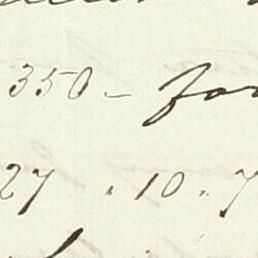 350 - for
27 . 10 . 7